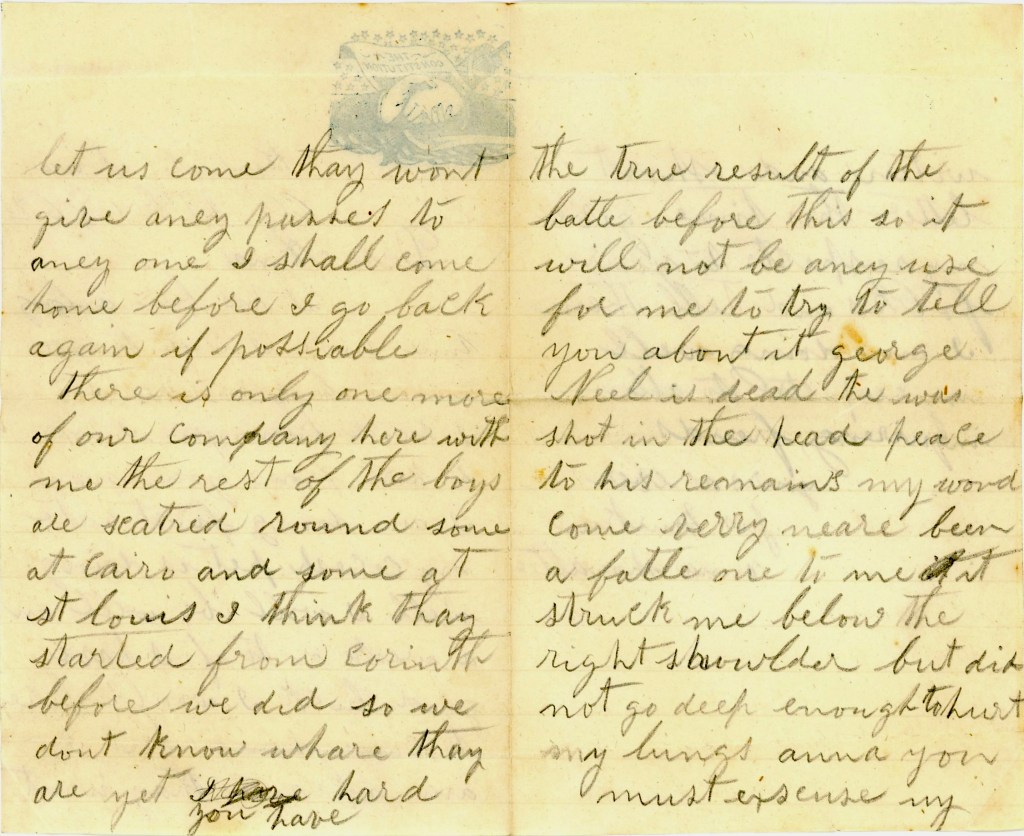 THE
CONSTITUTION
let us come thay wont
give aney passes to
aney one I shall come
home before I go back
again if possiable
there is only one more
of our company here with
me the rest of the boys
are scatred round some
at Cairo and some at
st louis I think thay
started from Corinth
before we did so we
dont know whare thay
are yet hard
you have
the true result of the
batle before this so it
will not be aney use
for me to try to tell
you about it george
Neel is dead the was
shot in the head peace
to his remains my wond
come verry neare been
a fatle one to me it
struck me below the
right shoulder but did
not go deep enough to hurt
my lungs anna you
must excuse my